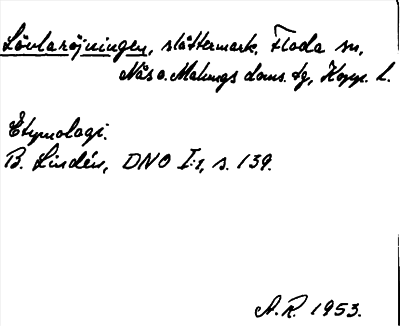 Lövlaröjningen, slåttermark, Floda sn,
Nås o. Malungs doms. tg, Kopp. l.
Etymologi.
B. Lindén, DNO I:1, s. 139.
A.R. 1953.